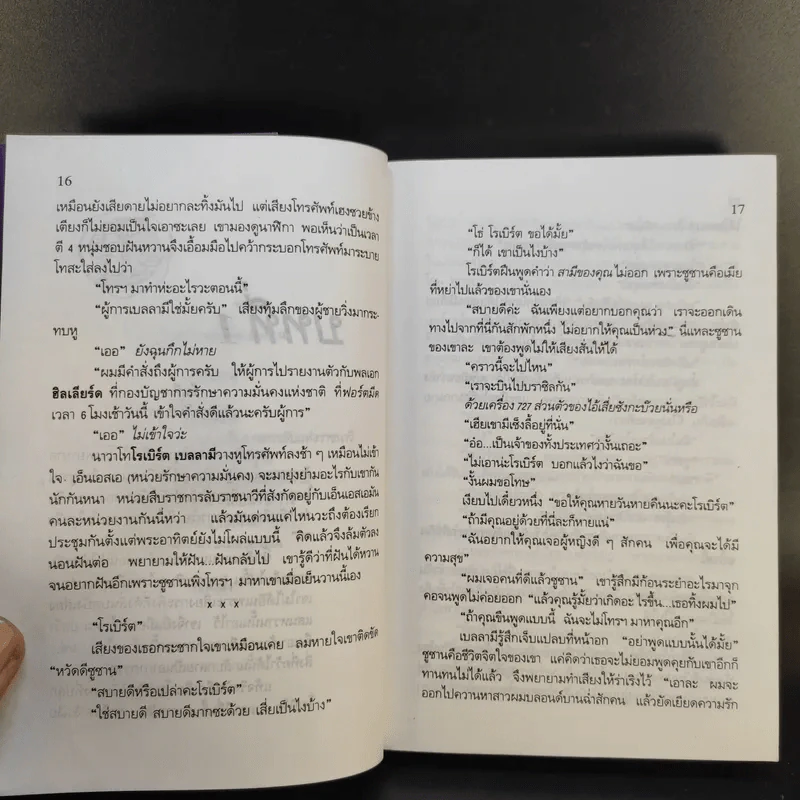 16
เหมือนยังเสียดายไม่อยากละทิ้งมันไป แต่เสียงโทรศัพท์เฮงซวยข้าง
เตียงก็ไม่ยอมเป็นใจเอาซะเลย เขามองดูนาฬิกา พอเห็นว่าเป็นเวลา
ตี 4 หนุ่มชอบฝันหวานจึงเอื้อมมือไปคว้ากระบอกโทรศัพท์มาระบาย
โทสะใส่ลงไปว่า
“โทรฯ มาทำห่ะอะไรวะตอนนี้”
“ผู้การเบลลามีใช่มั้ยครับ” เสียงทุ้มลึกของผู้ชายวิ่งมากระ-
ทบหู
“เออ” ยังฉุนกึกไม่หาย
“ผมมีคำสั่งถึงผู้การครับ ให้ผู้การไปรายงานตัวกับพลเอก
ฮิลเลียร์ด ที่กองบัญชาการรักษาความมั่นคงแห่งชาติ ที่ฟอร์ตมีด
เวลา 6 โมงเช้าวันนี้ เข้าใจคำสั่งดีแล้วนะครับผู้การ”
“เออ” ไม่เข้าใจว่ะ
นาวาโทโรเบิร์ต เบลลามีวางหูโทรศัพท์ลงช้า ๆ เหมือนไม่เข้า
ใจ เอ็นเอสเอ (หน่วยรักษาความมั่นคง) จะมายุ่งย่ามอะไรกับเขากัน
นักกันหนา หน่วยสืบราชการลับราชนาวีที่สังกัดอยู่กับเอ็นเอสเอมัน
คนละหน่วยงานกันนี่หว่า แล้วมันด่วนแค่ไหนวะถึงต้องเรียก
ประชุมกันตั้งแต่พระอาทิตย์ยังไม่โผล่แบบนี้ คิดแล้วจึงล้มตัวลง
นอนฝันต่อ พยายามให้ฝัน...ฝันกลับไป เขารู้ดีว่าที่ฝันได้หวาน
จนอยากฝันอีกเพราะซูซานเพิ่งโทรฯ มาหาเขาเมื่อเย็นวานนี้เอง
x x x
“โรเบิร์ต”
เสียงของเธอกระชากใจเขาเหมือนเคย ลมหายใจเขาติดขัด
“หวัดดีซูซาน”
“สบายดีหรือเปล่าคะโรเบิร์ต”
“ใช่สบายดี สบายดีมากซะด้วย เสี่ยเป็นไงบ้าง”
17
“โธ่ โรเบิร์ต ขอได้มั้ย”
“ก็ได้ เขาเป็นไงบ้าง”
โรเบิร์ตฝืนพูดคำว่า สามีของคุณ ไม่ออก เพราะซูซานคือเมีย
ที่หย่าไปแล้วของเขานั่นเอง
“สบายดีค่ะ ฉันเพียงแต่อยากบอกคุณว่า เราจะออกเดิน
ทางไปจากที่นี่กันสักพักหนึ่ง ไม่อยากให้คุณเป็นห่วง” นี่แหละซูซาน
ของเขาละ เขาต้องพูดไม่ให้เสียงสั่นให้ได้
“คราวนี้จะไปไหน”
“เราจะบินไปบราซิลกัน”
ด้วยเครื่อง 727 ส่วนตัวของไอ้เสี่ยซังกะบ๊วยนั่นหรือ
“เฮียเขามีเซ็งลี้อยู่ที่นั่น”
“อ๋อ...เป็นเจ้าของทั้งประเทศว่างั้นเถอะ”
“ไม่เอาน่ะโรเบิร์ต บอกแล้วไงว่าฉันขอ”
“งั้นผมขอโทษ”
เงียบไปเดี๋ยวหนึ่ง “ขอให้คุณหายวันหายคืนนะคะโรเบิร์ต”
“ถ้ามีคุณอยู่ด้วยที่นี่ละก็หายแน่”
“ฉันอยากให้คุณเจอผู้หญิงดี ๆ สักคน เพื่อคุณจะได้มี
ความสุข”
“ผมเจอคนที่ดีแล้วซูซาน” เขารู้สึกมีก้อนระยำอะไรมาจุก
คอจนพูดไม่ค่อยออก “แล้วคุณรู้มั้ยว่าเกิดอะไรขึ้น...เธอทิ้งผมไป”
“ถ้าคุณขืนพูดแบบนี้ ฉันจะไม่โทรฯ มาหาคุณอีก”
เบลลามีรู้สึกเจ็บแปลบที่หน้าอก “อย่าพูดแบบนั้นได้มั้ย”
ซูซานคือชีวิตจิตใจของเขา แค่คิดว่าเธอจะไม่ยอมพูดคุยกับเขาอีกก็
ทานทนไม่ได้แล้ว จึงพยายามทำเสียงให้ร่าเริงไว้ “เอาละ ผมจะ
ออกไปควานหาสาวผมบลอนด์บานฉ่ำสักคน แล้วยัดเยียดความรัก